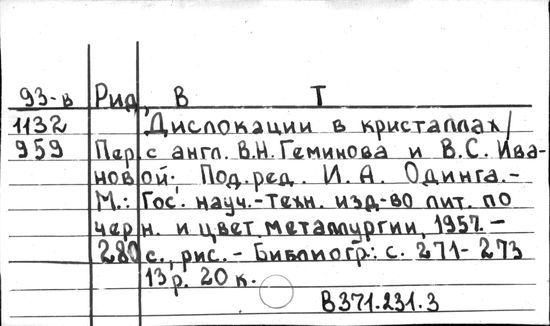 93-в Рид, В Т
1132 Дислокации в кристаллах/
959 Пер. с англ. В.Н. Геминова и В.С. Ива-
новой. Под. ред. И. А. Одинга.-
М.: Гос. науч.-техн. изд-во лит. по
черн. и цвет. металлургии, 1957. -
280 с., рис. - Библиогр.: с. 271-273
13 р. 20 к.
В371.231.3